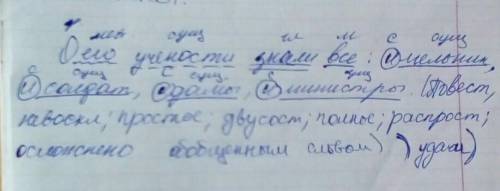 мест сущ гл м с сущ
О его учености знали все: и мельник,
с сущ с сущ с сущ
и солдат, и дамы, и министры. (Повест,
невоскл; простое; двусост; полное; распрост;
осложнено обобщенным словом) )удачи)